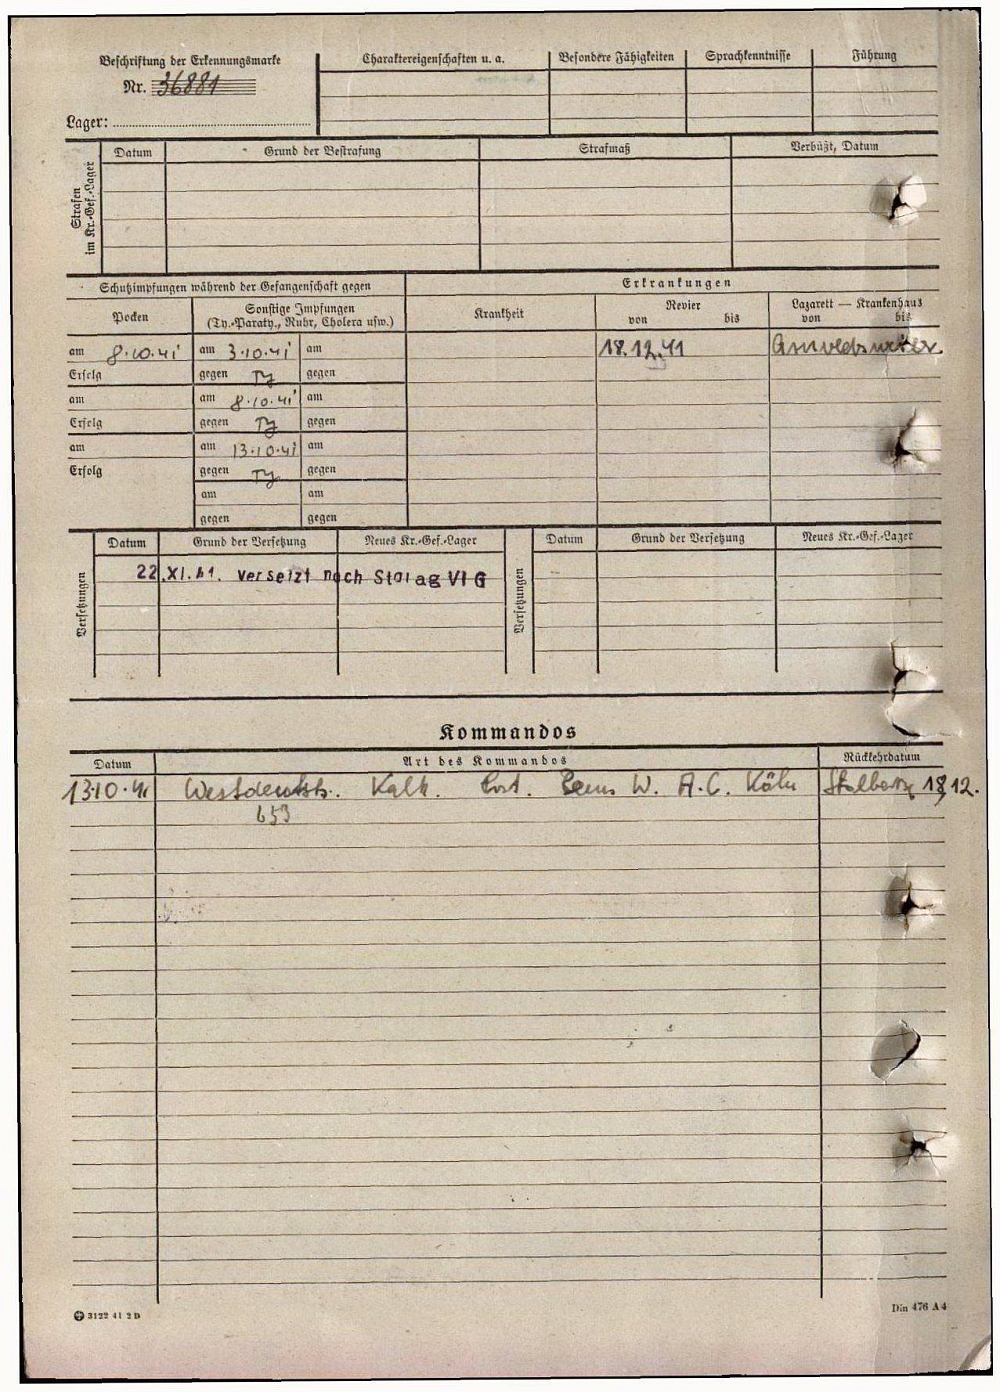 Beschriftung der Erkennungsmarke
Nr. 36881
Lager:
Charaktereigenschaften u. a.
Besondere Fähigkeiten
Sprachkenntnisse
Führung
Strafen
im Kr.-Gef.-Lager
Datum
Grund der Bestrafung
Strafmaß
Verbüßt, Datum
Schutzimpfungen während der Gefangenschaft gegen
Erkrankungen
Pocken
Sonstige Impfungen
(Ty.-Paraty., Ruhr, Cholera usw.)
Krankheit
Revier
von bis
Lazarett — Krankenhaus
von bis
am 8.10.41 am 3.10.41 am
18.12.41
Arnoldsweiler
Erfolg gegen Ty gegen
am am 8.10.41 am
Erfolg gegen Ty gegen
am am 13.10.41 am
Erfolg gegen Ty gegen
am am
gegen gegen
Versetzungen
Datum Grund der Versetzung Neues Kr.-Gef.-Lager
22.XI.41. versetzt nach Stalag VI G
Versetzungen
Datum Grund der Versetzung Neues Kr.-Gef.-Lager
Kommandos
Datum Art des Kommandos Rückkehrdatum
13.10.41 Westdeutsch. Kalk. W. A.C. Köln Stolberg 18.12.
653
3122 41 2 D
Din 476 A4